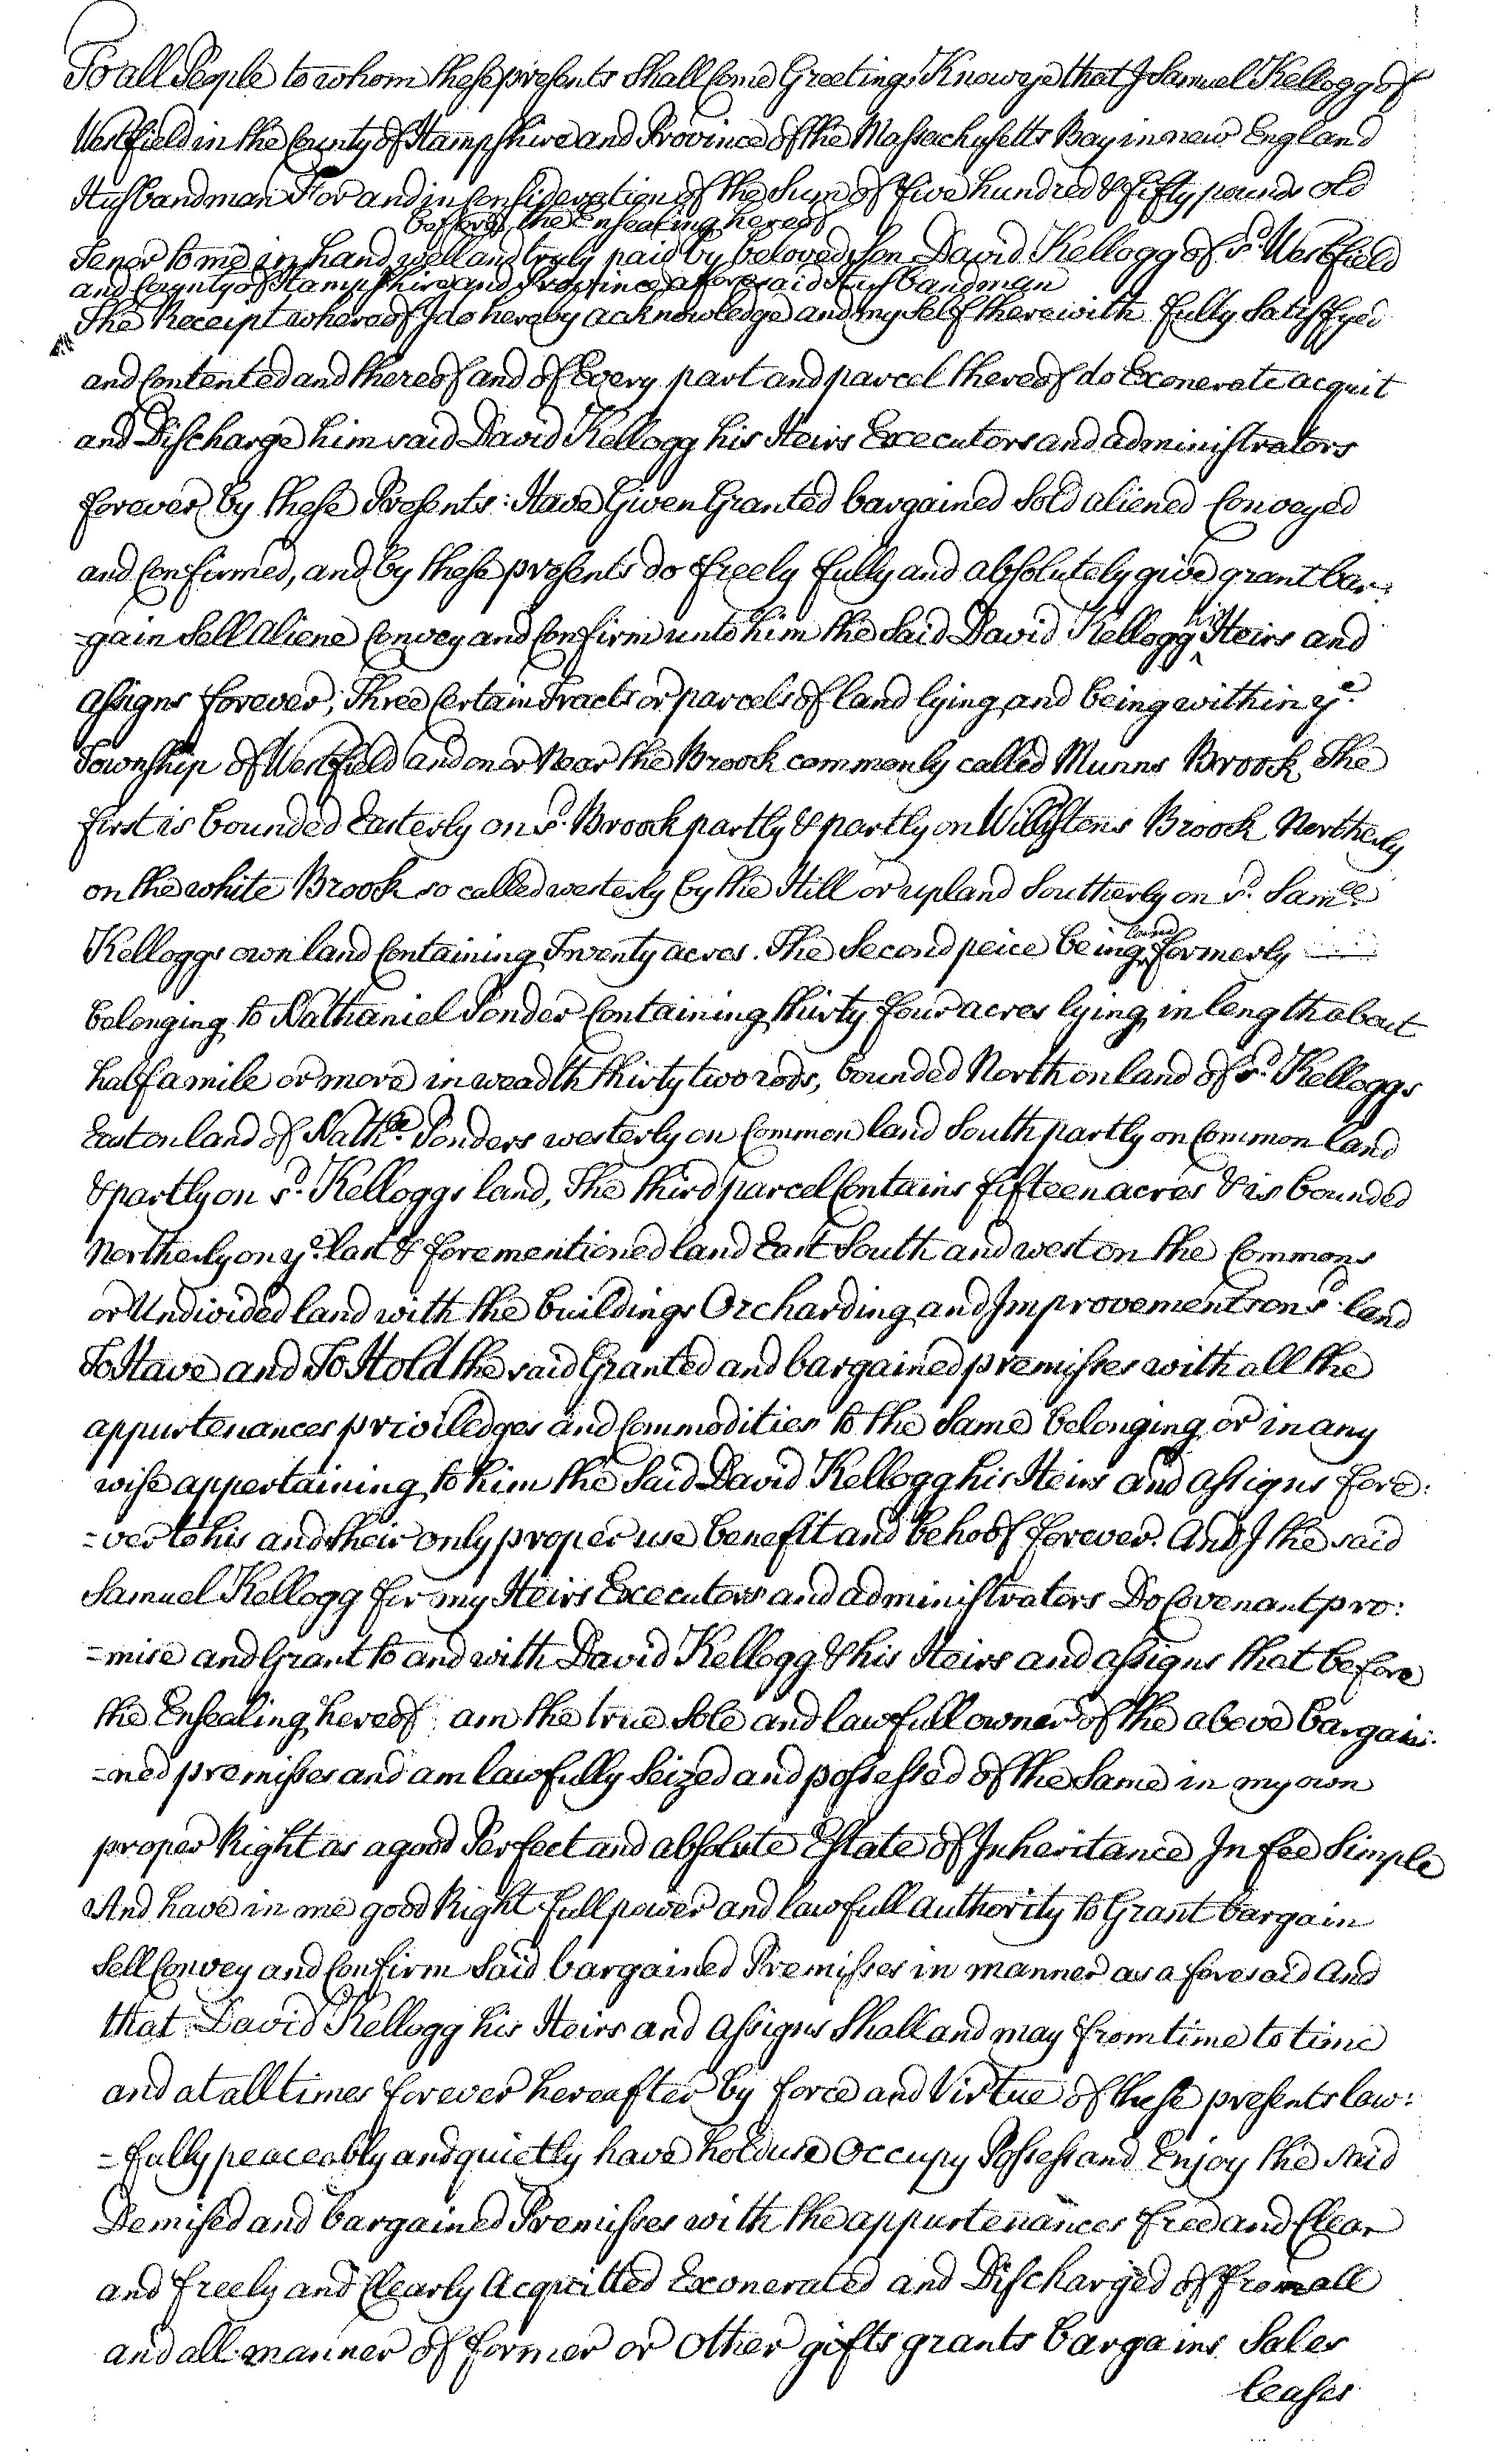 To all People to whom these presents Shall Come Greetings Know ye that I Samuel Kellogg of
Westfield in the County of Hampshire and Province of the Massachusetts Bay in new England
Husbandman For and in Consideration of the Sum of Five hundred & Fifty pounds old
before the Ensealing hereof
Tenor to me in hand well and truly paid by beloved Son David Kellogg of sd. Westfield
and County of Hampshire and Province aforesaid Husbandman
The Receipt whereof I do hereby acknowledge and my Self therewith Fully Satisfyed
and Contented and thereof and of Every part and parcel thereof do Exonerate acquit
and Discharge him said David Kellogg his Heirs Executors and administrators
forever by these Presents: Have Given Granted bargained Sold aliened Conveyed
and Confirmed, and by these presents do Freely Fully and absolutely give grant bar:
-gain Sell Aliene Convey and Confirm unto him the Said David Kellogg his Heirs and
assigns Forever; Three Certain Tracts or parcels of land lying and being within ye.
Township of Westfield and on or Near the Brook commonly called Munns Brook The
first is bounded Easterly on sd. Brook partly & partly on Willistons Brook Northerly
on the white Brook so called westerly by the Hill or upland Southerly on sd. Samll.
Kelloggs own land Containing Twenty acres. The Second peice being land Formerly
belonging to Nathaniel Ponder Containing thirty Four acres lying in length about
half a mile or more in weadth thirty two rods, bounded North on land of sd. Kelloggs
East on land of Nathll. Ponders westerly on Common land South partly on Common land
& partly on sd. Kelloggs land, The third parcel Contains Fifteen acres & is bounded
Northerly on ye. last & forementioned land East South and west on the Commons
or Undivided land with the buildings Orcharding and Improvements on sd. land
To Have and To Hold the said Granted and bargained premisses with all the
appurtenances priviledges and Commodities to the Same belonging or in any
wise appertaining to him the Said David Kellogg his Heirs and assigns Fore:
-ver to his and their only proper use benefit and behoof Forever. And I the said
Samuel Kellogg for my Heirs Executors and administrators Do Covenant pro:
-mise and Grant to and with David Kellogg & his Heirs and assigns that before
the Ensealing hereof am the true Sole and lawfull owner of the above bargai:
-ned premisses and am lawfully Seized and possessed of the Same in my own
proper Right as a good Perfect and absolute Estate of Inheritance In Fee Simple
And have in me good Right Full power and lawfull authority to Grant bargain
Sell Convey and Confirm Said bargained Premisses in manner as aforesaid And
that David Kellogg his Heirs and Assigns Shall and may From time to time
and at all times forever hereafter by force and Virtue of these presents law:
-fully peaceably and quietly have hold use Occupy Possess and Enjoy the said
Demised and bargained Premisses with the appurtenances Free and Clear
and Freely and Clearly Acquitted Exonerated and Discharged of From all
and all manner of Former or Other gifts grants bargains Sales
leases